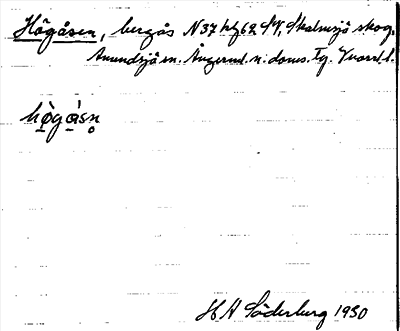 Högåsen, bergås N37 kfj 62 SV, Skalmsjö skog.
Anundsjö sn. Ångerml. n. doms. Tg. Vnorrl. l.
hø̀gåsn̥
H A Söderberg 1930